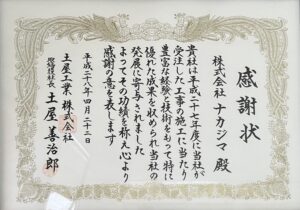 感謝状
株式会社 ナカジマ 殿
貴社は平成二十七年度に当社が
受注した工事の施工に当たり
豊富な経験と技術をもって特に
優れた成果を収められ当社の
発展に寄与されました
よってその功績を称え心より
感謝の意を表します
平成二十八年四月二十二日
土屋工業 株式会社
代表取締役社長 土屋善治郎